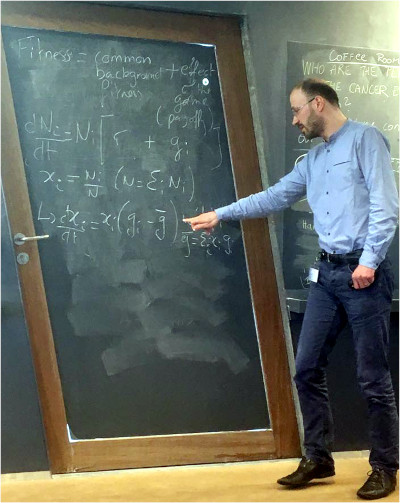 Fitness = common
background + effect
fitness of the
game
(payoff)
dNi/dt = Ni [ r + gi ]
xi = Ni/N (N = Σi Ni)
↳ dxi/dt = xi (gi - g̅)
g̅ = Σi xi gi
COFFEE ROOM
WHO ARE THE
THE CANCER
?